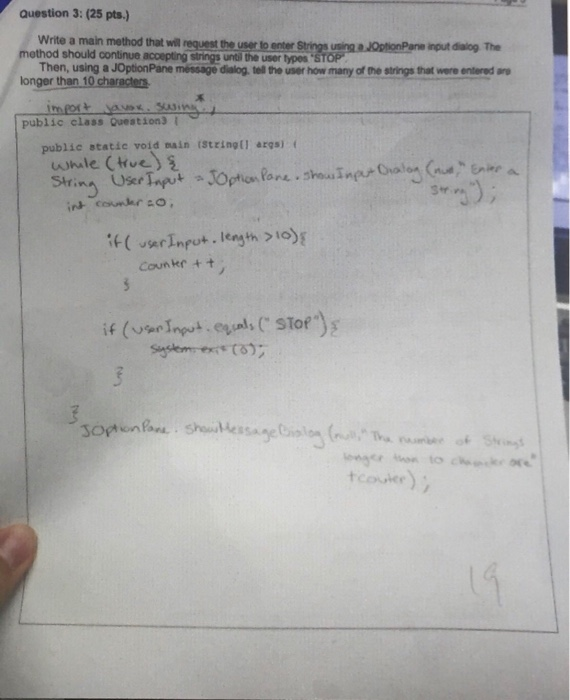 Question 3: (25 pts.)
Write a main method that will request the user to enter Strings using a JOptionPane input dialog. The
method should continue accepting strings until the user types "STOP".
Then, using a JOptionPane message dialog, tell the user how many of the strings that were entered are
longer than 10 characters.
import javax.swing.*;
public class Question3 {
public static void main (String[] args) {
while (true) {
String UserInput = JOptionPane.showInputDialog (null," Enter a
String");
int counter = 0;
if( userInput.length >10){
counter ++;
}
if (userInput.equals(" STOP"){
system.exit (0);
}
}
JOptionPane.showMessageDialog (null," The number of Strings
longer than 10 character are"
+couter);
19